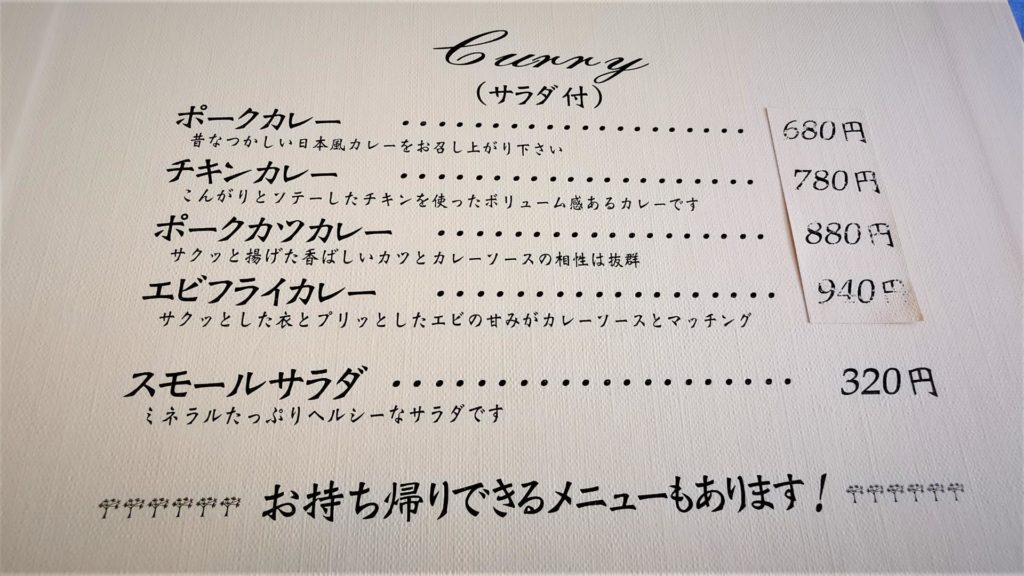 Curry
(サラダ付)
ポークカレー ・・・・・・・・・・・・・・・・・・・・ 680円
昔なつかしい日本風カレーをお召し上がり下さい
チキンカレー ・・・・・・・・・・・・・・・・・・・・ 780円
こんがりとソテーしたチキンを使ったボリューム感あるカレーです
ポークカツカレー ・・・・・・・・・・・・・・・・・・ 880円
サクッと揚げた香ばしいカツとカレーソースの相性は抜群
エビフライカレー ・・・・・・・・・・・・・・・・・・ 940円
サクッとした衣とプリッとしたエビの甘みがカレーソースとマッチング
スモールサラダ ・・・・・・・・・・・・・・・・・・・・・ 320円
ミネラルたっぷりヘルシーなサラダです
お持ち帰りできるメニューもあります!